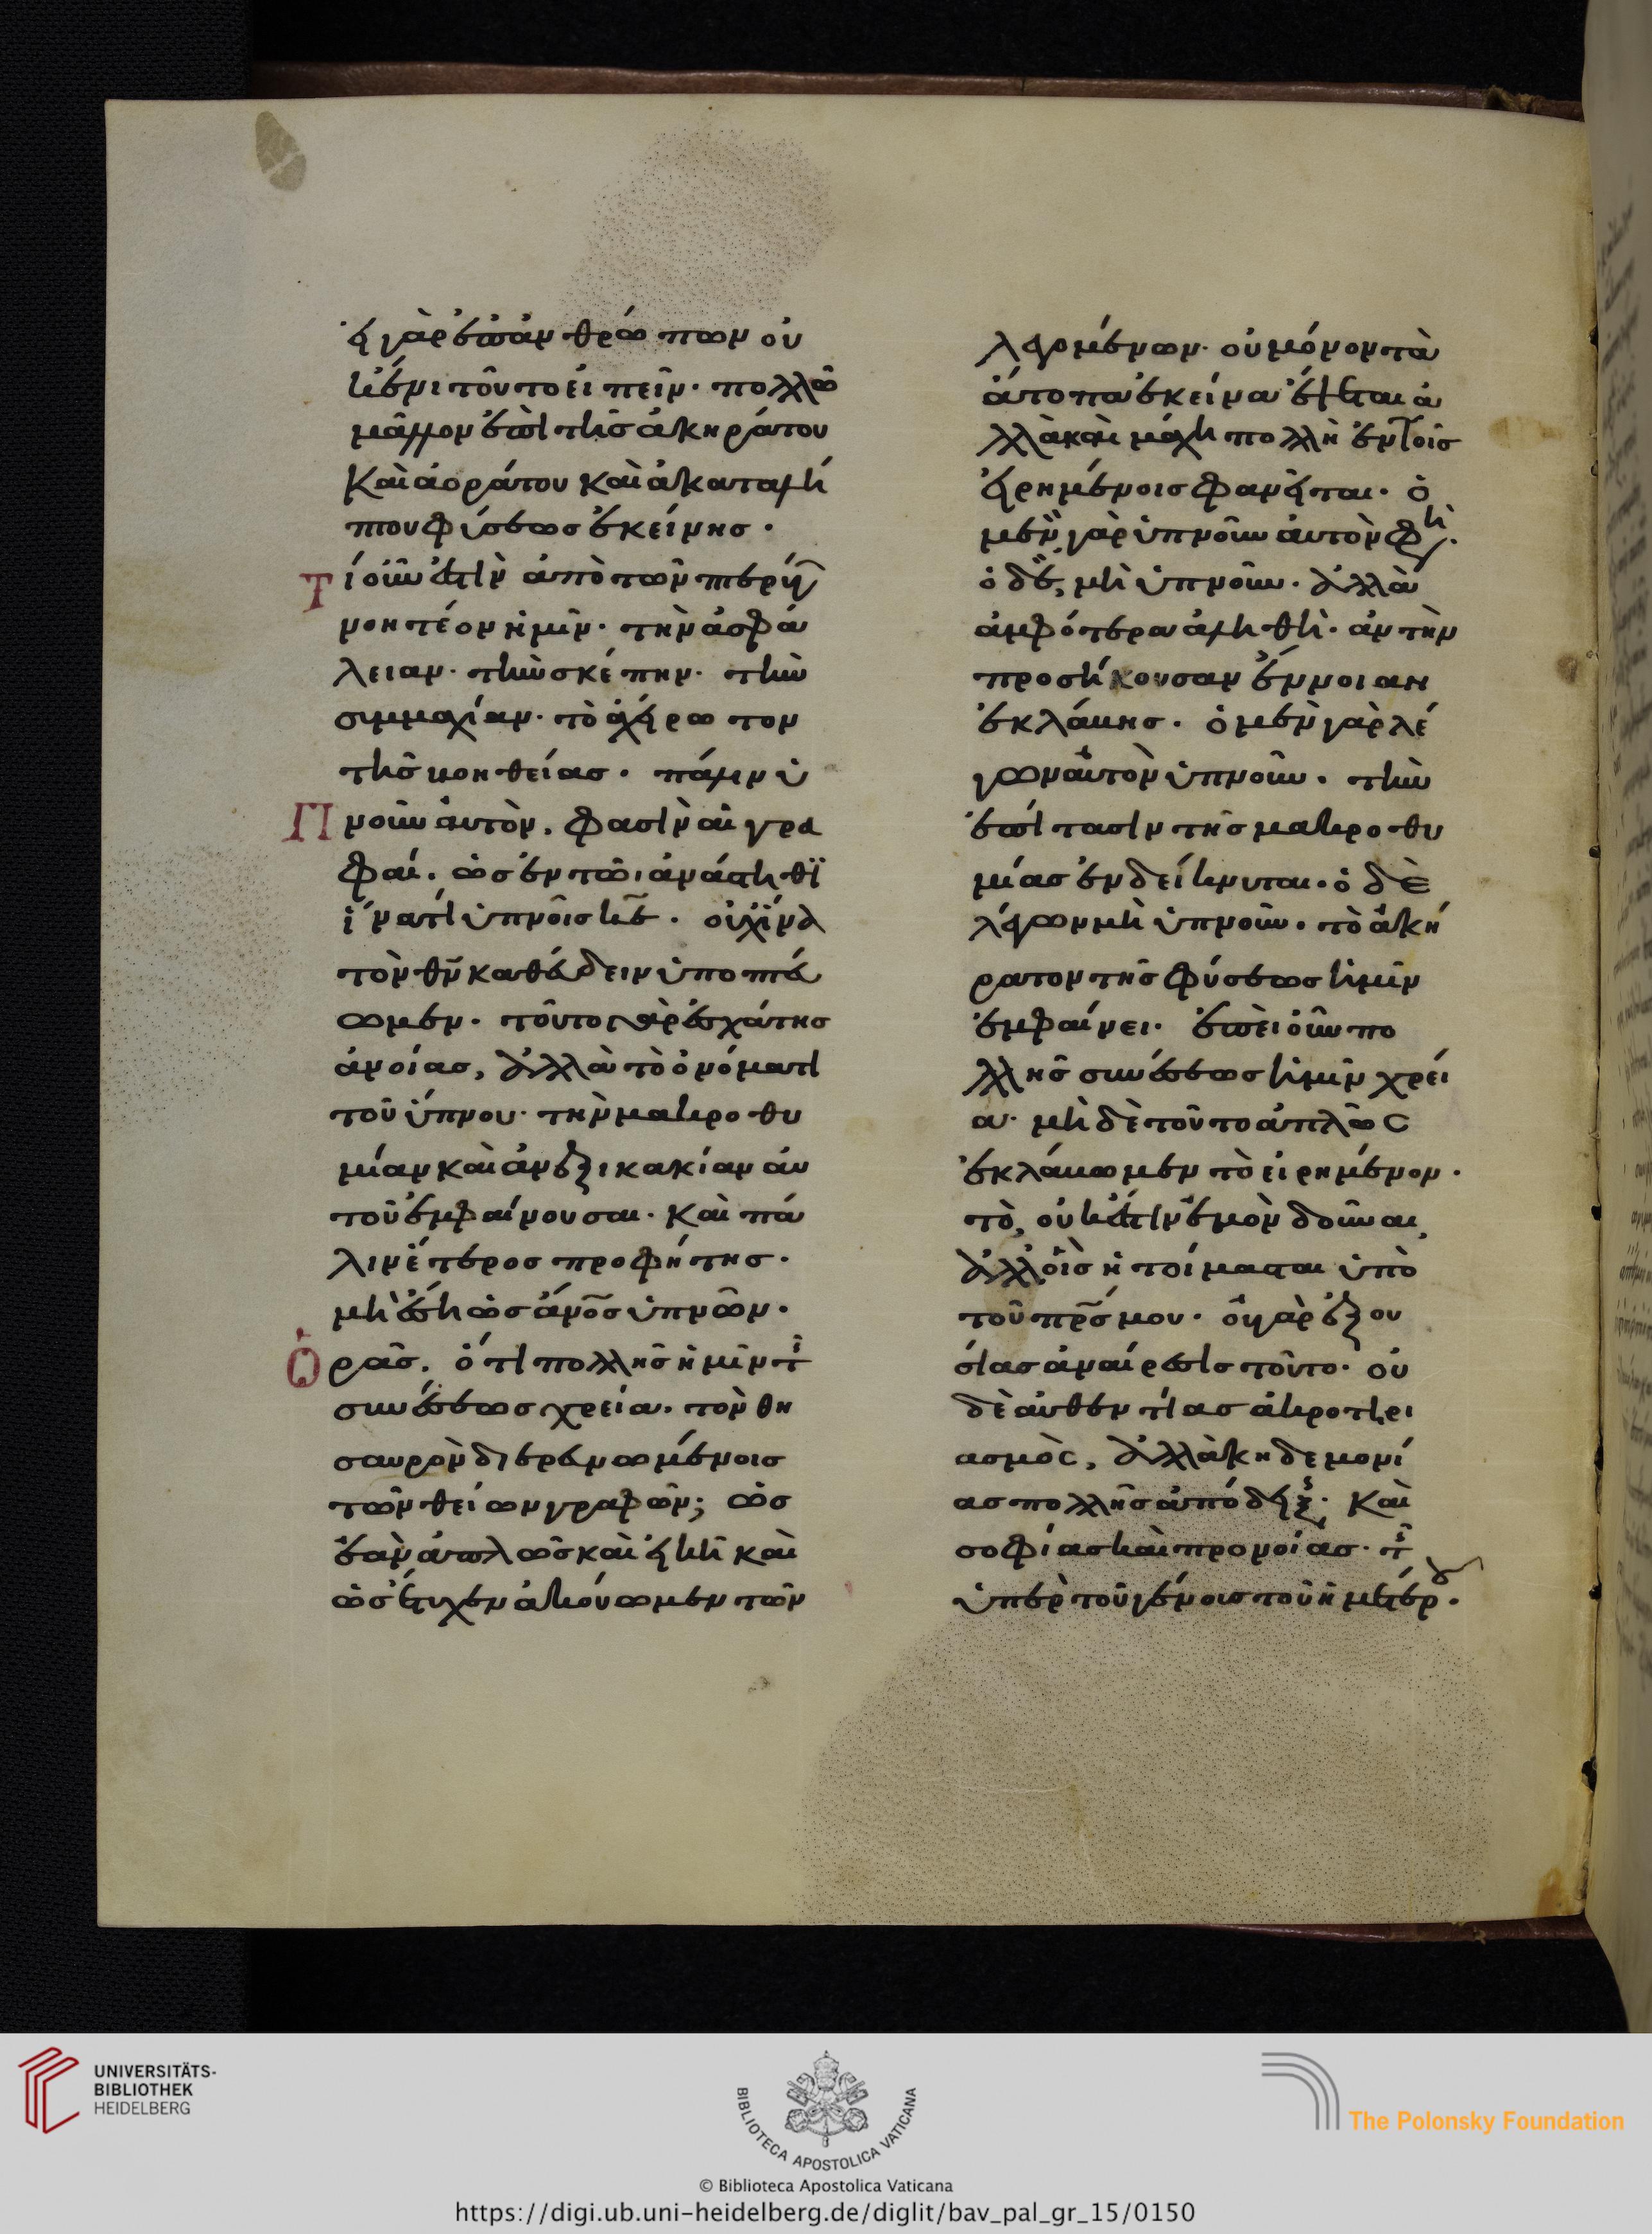 εἰ γὰρ ἐπὶ ἀνθρώπων οὐ
κ ἔνι τοῦτο εἰπεῖν· πολλῶ
μᾶλλον ἐπὶ τῆς ἀκηράτου
καὶ ἀοράτου καὶ ἀκαταλή
πτου φύσεως ἐκείνης·
Τί οὖν ἐστὶν ἀπὸ τῶν πτερύγ
νοητέον ἡμῖν· τὴν ἀσφά
λειαν· τὴν σκέπην· τὴν
συμμαχίαν· τὸ ἀχείρωτον
τῆς βοηθείας· πάλιν ὑ
Πνοῦν αὐτὸν, φασὶν αἱ γρα
φαί. ὡς ἐν τῶι ἀνάστηθϊ
ἱνατί ὑπνοῖς κε̅· οὐχ ἵνα
τὸν θν̅ καθεύδειν ὑποπτεύ
ωμεν· τοῦτο γὰρ ἐσχάτης
ἀνοίας, ἀλλὰ τὸ ὀνόματι
τοῦ ὕπνου· τὴν μακροθυ
μίαν καὶ ἀνεξικακίαν αὐ
τοῦ ἐμφαίνουσαι· καὶ πά
λιν ἕτερος προφήτης·
μὴ ἔση ὡς ἄνο̅ς ὑπνῶν·
Ὁρᾶς, ὅτι πολλῆς ἡμῖν τῆς
συνέσεως χρεία· τὸν θη
σαυρὸν διερευνωμένοις
τῶν θείων γραφῶν; ὡς
ἐὰν ἁπλῶς καὶ εἰκῆ καὶ
ὡς ἔτυχεν ἀκούωμεν τῶν
λεγομένων· οὐ μόνον τὰ
ἄτοπα ἐκεῖνα ἕψεται ἀ
λλὰ καὶ μάχη πολλὴ ἐν τοῖς
εἰρημένοις φανεῖται· ὁ
μὲν γὰρ ὑπνοῦν αὐτὸν φη·
ὁ δὲ, μὴ ὑπνοῦν· ἀλλὰ
ἀμφότερα ἀληθῆ· ἂν τὴν
προσήκουσαν ἔννοιαν
ἐκλάβης· ὁ μὲν γὰρ λέ
γων αὐτὸν ὑπνοῦν· τὴν
ἐπίτασιν τῆς μακροθυ
μίας ἐνδείκνυται· ὁ δὲ
λέγων μὴ ὑπνοῦν· τὸ ἀκή
ρατον τῆς φύσεως ἡμῖν
ἐμφαίνει· ἐπεὶ οὖν πο
λλῆς συνέσεως ἡμῖν χρεί
α· μὴ δὲ τοῦτο ἁπλῶς
ἐκλάβωμεν τὸ εἰρημένον·
τὸ, οὐκ ἔστιν ἐμὸν δοῦναι,
ἀλλ' οἷς ἡτοίμασται ὑπὸ
τοῦ πρ̅ς μου· οὐ γὰρ ἐξου
σίας ἀναίρεσις τοῦτο· οὐ
δὲ αὐθεντίας ἀκρωτηρι
ασμὸς, ἀλλὰ κηδεμονί
ας πολλῆς ἀπόδειξις· καὶ
σοφίας καὶ προνοίας· τῆς
ὑπὲρ τοῦ γένους τοῦ ἡμετέρου·
UNIVERSITÄTS-
BIBLIOTHEK
HEIDELBERG
BIBLIOTECA APOSTOLICA VATICANA
The Polonsky Foundation
© Biblioteca Apostolica Vaticana
https://digi.ub.uni-heidelberg.de/diglit/bav_pal_gr_15/0150